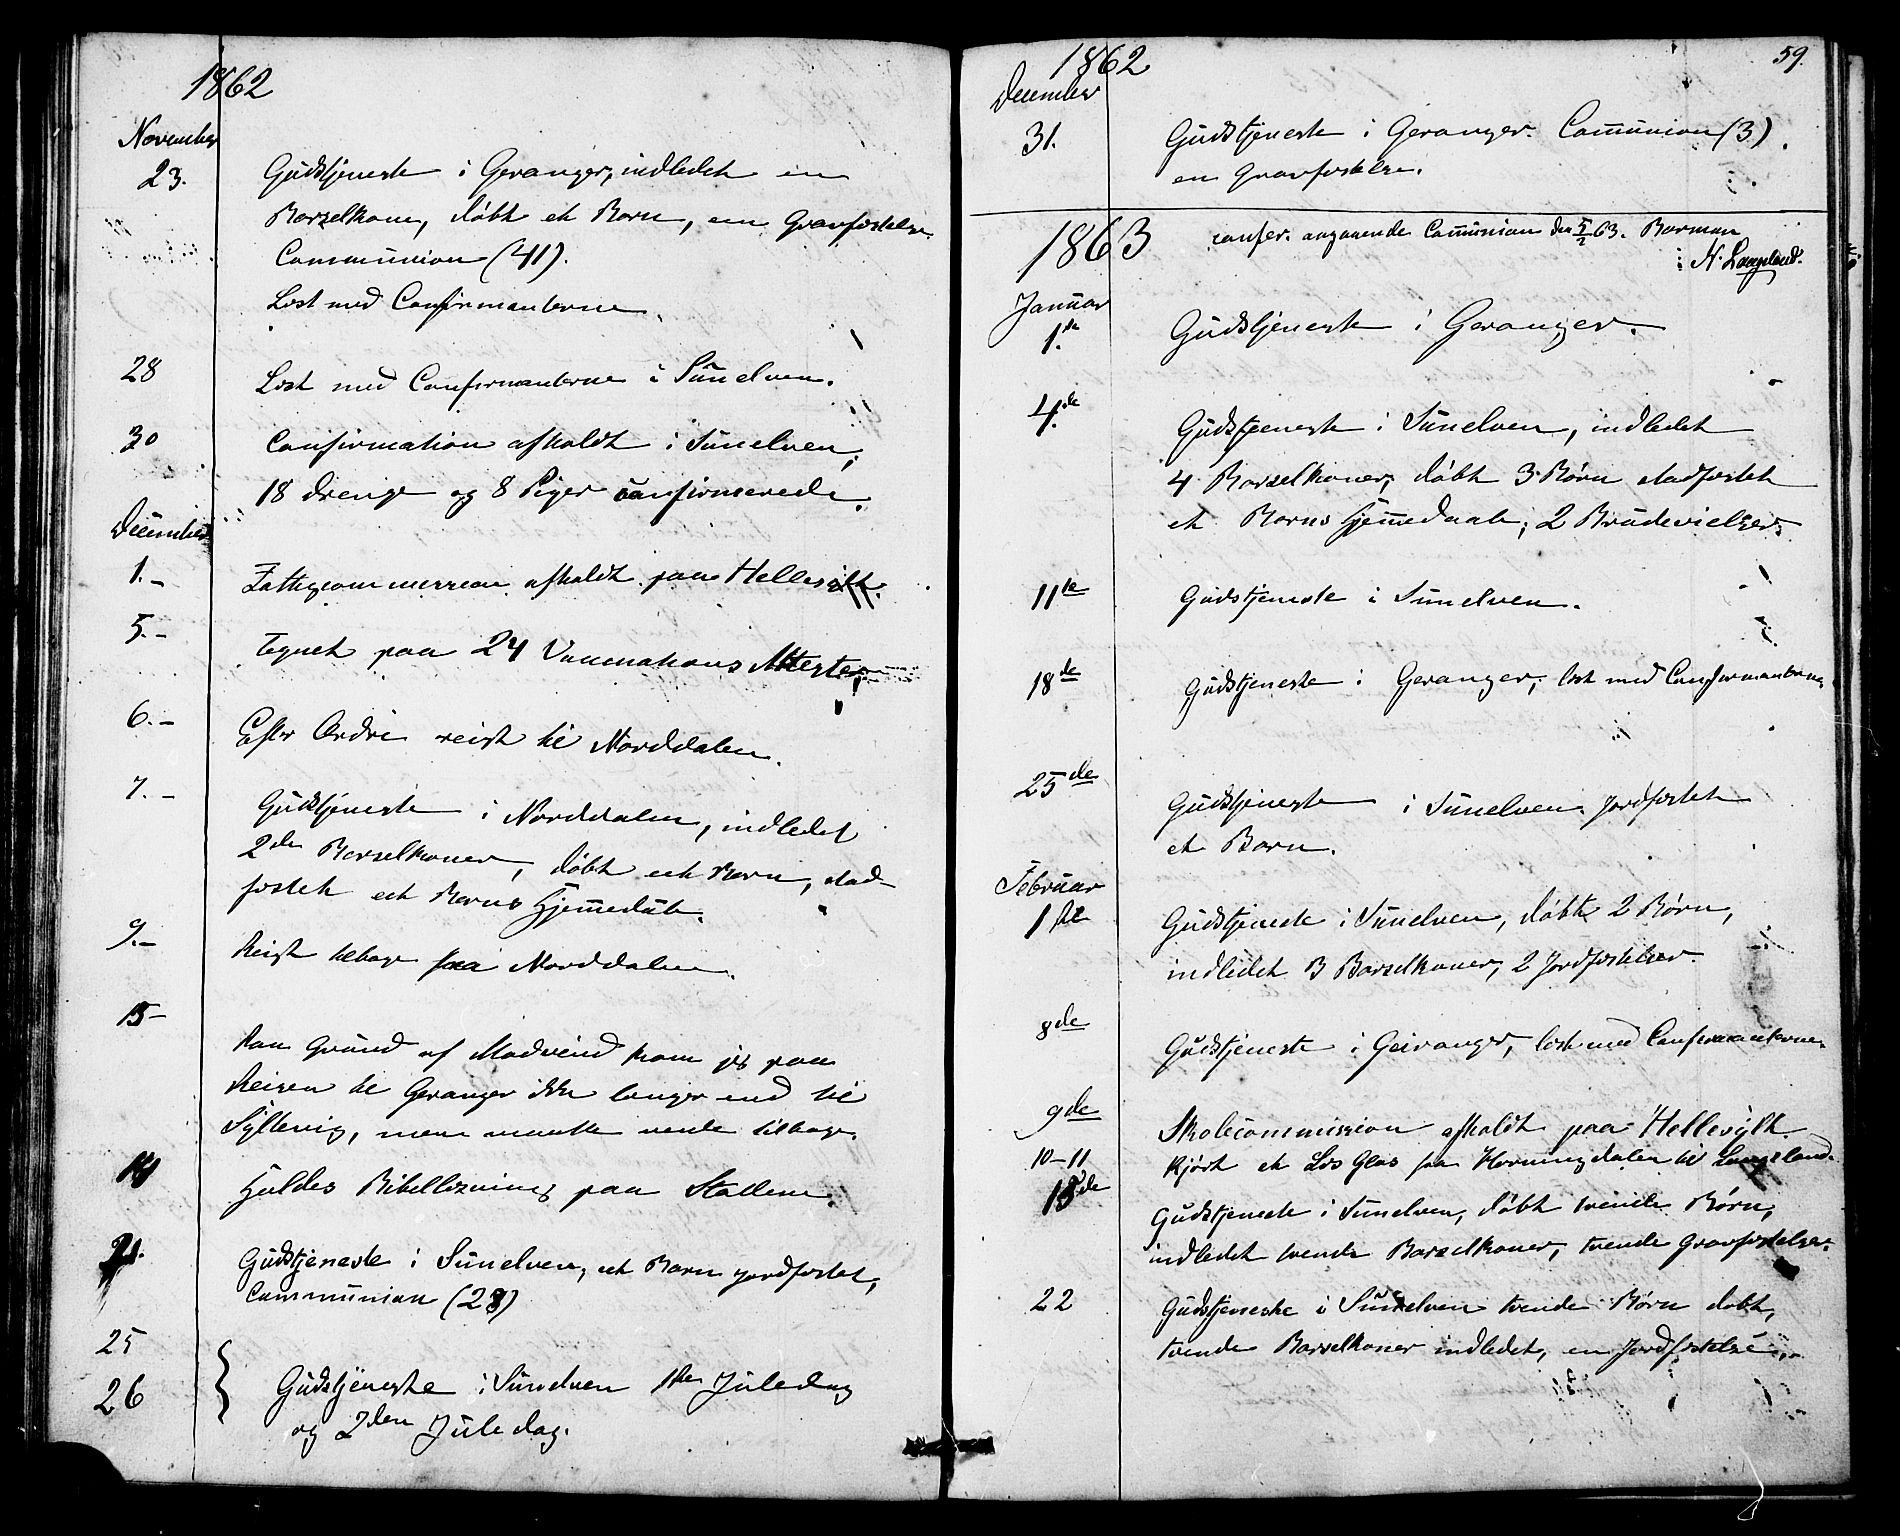 1862
November
23. Gudstjeneste i Geranger, indledet en
Barselkone, døbt et Barn, een Gravfæstelse
Communion (41).
Læst med Confirmanterne.
28 Læst med Confirmanterne i Sunelven.
30 Confirmation afholdt i Sunelven,
18 Drenge og 8 Piger confirmerede.
December
1.- Fattigcommission afholdt paa Hellesylt.
5.- Tegnet paa 24 Vaccinations Attester
6.- Efter Ordre reist til Norddalen.
7.- Gudstjeneste i Norddalen, indledet
2de Barselkoner, døbt eet Barn, stad-
fæstet eet Barns Hjemmedåb.
9.- Reist tilbage fra Norddalen.
13- Paa Grund af Modvind kom jeg paa
Reisen til Geranger ikke længer end til
Syltevig, men maatte vende tilbage.
14 Holdes Bibellæsning paa Stadheim.
21. Gudstjeneste i Sunelven, et Barn jordfæstet,
Communion (28)
25
26 Gudstjeneste i Sunelven 1ste Juledag
og 2den Juledag.
1862 59.
December
31. Gudstjeneste i Geranger. Communion (3).
en Gravfæstelse.
1863 confer. angaaende Communion den 5/2 63. Barman
i N. Langeland.
Januar
1.ste Gudstjeneste i Geranger.
4.de Gudstjeneste i Sunelven, indledet
4 Barselkoner, døbt 3 Børn stadfæstet
et Barns Hjemmedaab, 2 Brudevielser.
11te Gudstjeneste i Sunelven.
18de Gudstjeneste i Geranger, læst med Confirmanterne
25de Gudstjeneste i Sunelven. Jordfæstet
et Barn.
Februar
1ste Gudstjeneste i Sunelven, døbt 2 Børn,
indledet 3 Barselkoner, 2 Jordfæstelser.
8de Gudstjeneste i Geiranger, læst med Confirmanterne
9de Skolecommission afholdt paa Hellesylt.
10-11 Kjørt et Læs Glas fra Horningdalen til Langeland.
15de Gudstjeneste i Sunelven, døbt tvende Børn,
indledet tvende Barselkoner, tvende Gravfæstelser.
22 Gudstjeneste i Sunelven tvende Børn døbt,
tvende Barselkoner indledet, en Jordfæstelse.